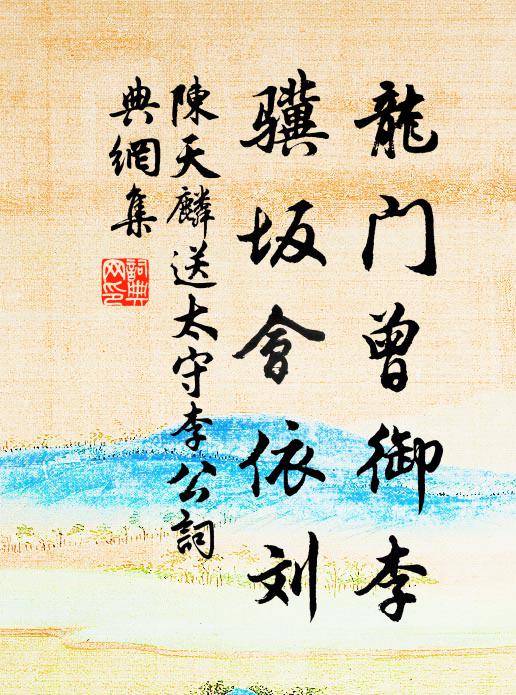 龍门曾御李
骥坂會依刘
陳天麟送太守李公詞
典網集
詞典
网印